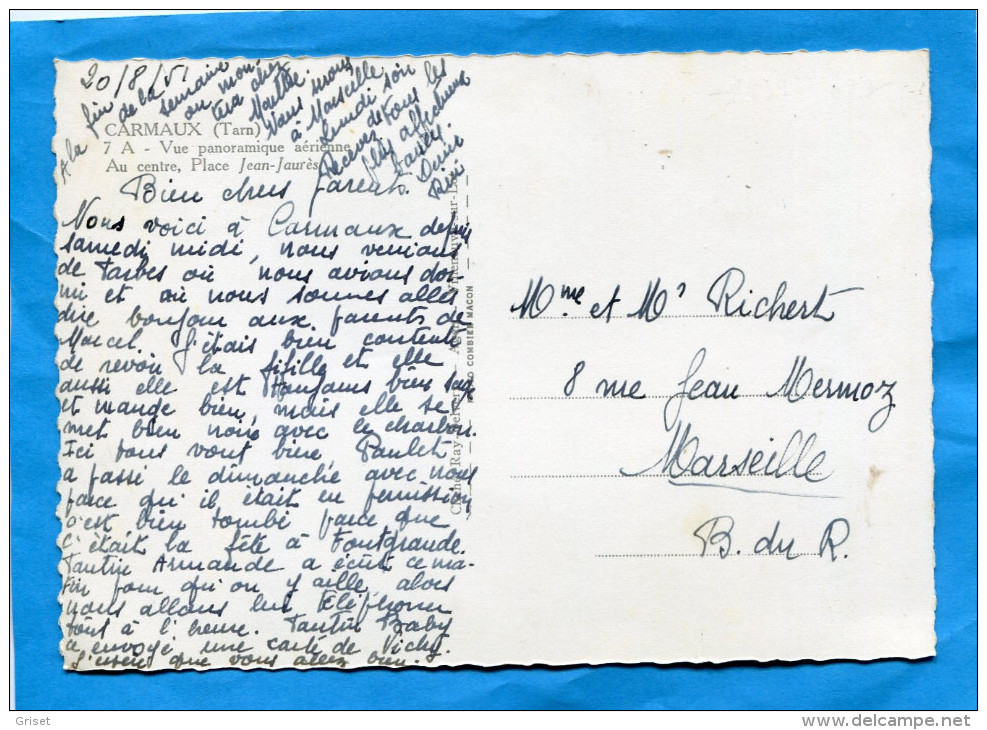 20/8/51
CARMAUX (Tarn)
7 A - Vue panoramique aérienne
Au centre, Place Jean-Jaurès
Bien chers parents.
Nous voici à Carmaux depuis
samedi midi, nous venions
de Tarbes où nous avions dor-
mi et où nous sommes allés
dire bonjour aux parents de
Marcel. J'étais bien contente
de revoir la fifille et elle
aussi elle est toujours bien
et mange bien, mais elle se
met bien noire avec le charbon.
Ici tous vont bien Paulet
a passé le dimanche avec nous
parce qu'il était en permission
c'est bien tombé parce que
c'était la fête à Fontgrande.
Tantine Armande a écrit ce ma-
tin pour qu'on y aille, alors
nous allons lui téléphoner
tout à l'heure. Tantine Baby
a envoyé une carte de Vichy.
J'espère que vous allez bien.
A la fin de la semaine
on mon-
tera chez
Nous
à Marseille
Lundi soir
Recevez de tous les
plus affectueux
baisers.
COMBIER MACON
Mme et Mr Richert
8 rue Jean Mermoz
Marseille
B. du R.
Griset
www.delcampe.net